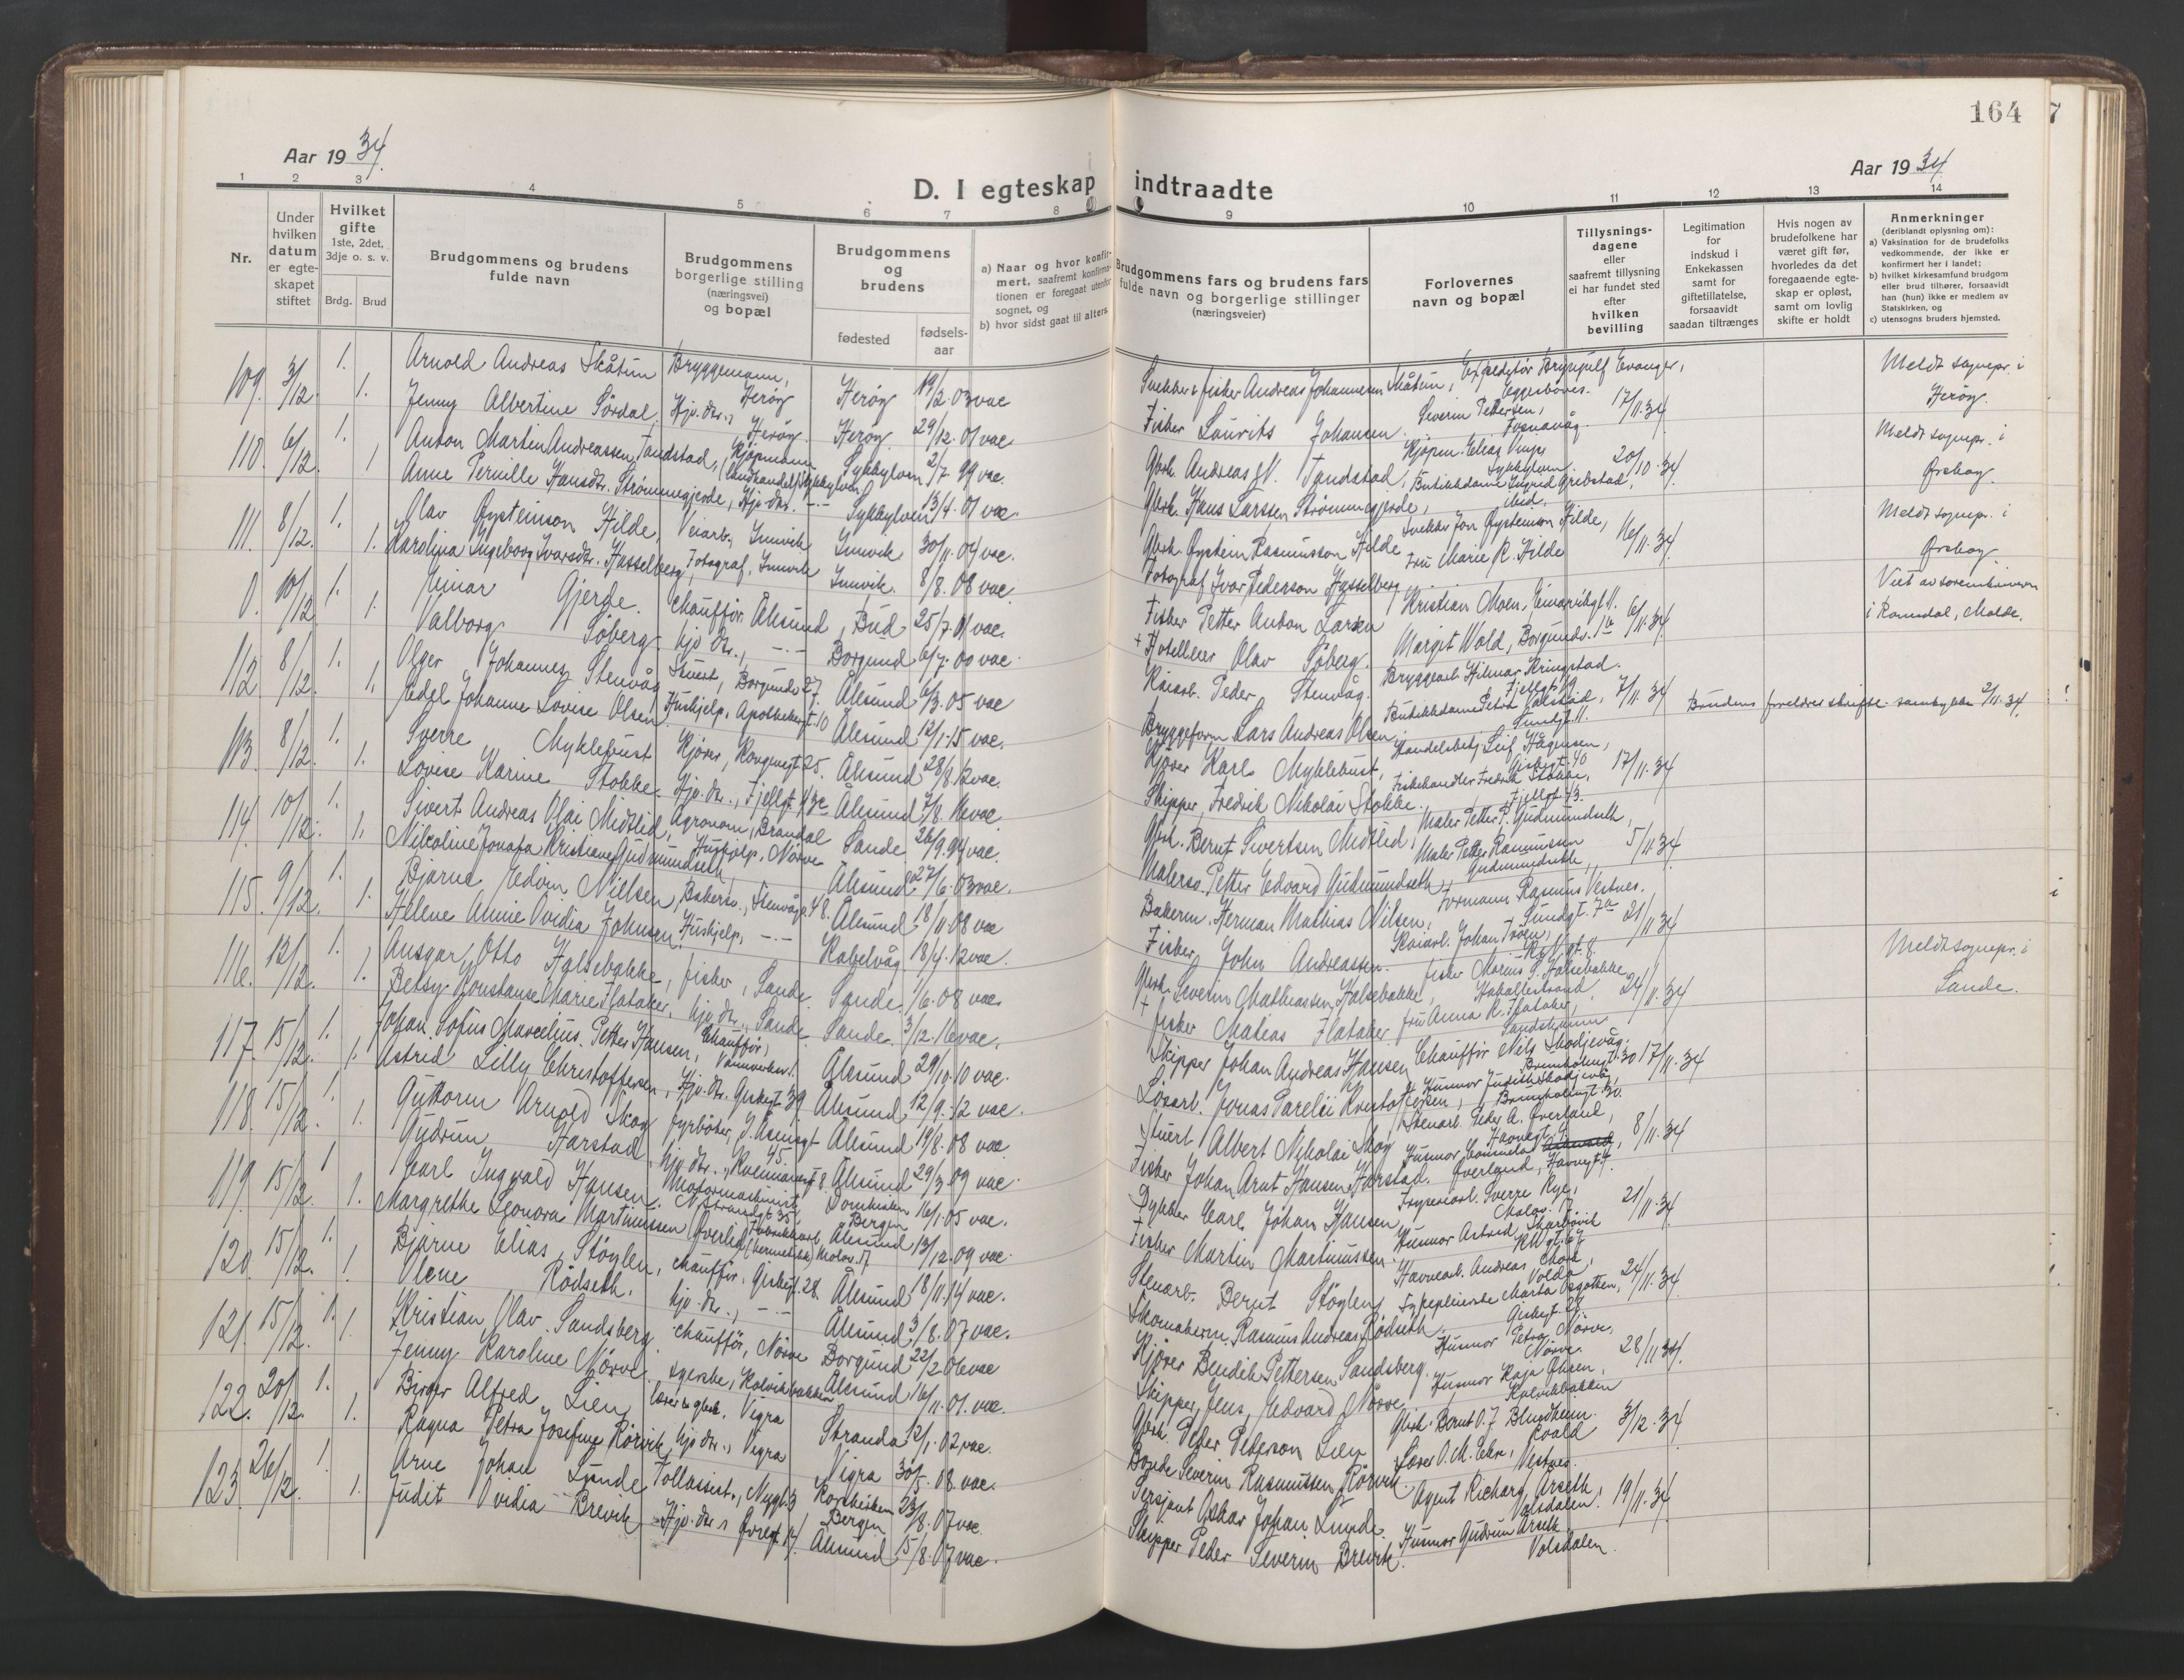 164
7
Aar 1934.
Aar 1934
D. I egteskap indtraadte
1 2 3 4 5 6 7 8 9 10 11 12 13 14
Nr.
Under hvilken datum er egteskapet stiftet
Hvilket gifte 1ste, 2det, 3dje o. s. v.
Brdg.
Brud
Brudgommens og brudens fulde navn
Brudgommens borgerlige stilling (næringsvei) og bopæl
Brudgommens og brudens
fødested
fødselsaar
a) Naar og hvor konfirmert, saafremt konfirmationen er foregaat utenfor sognet, og
b) hvor sidst gaat til alters.
Brudgommens fars og brudens fars fulde navn og borgerlige stillinger (næringsveier)
Forlovernes navn og bopæl
Tillysningsdagene eller saafremt tillysning ei har fundet sted efter hvilken bevilling
Legitimation for indskud i Enkekassen samt for giftetillatelse, forsaavidt saadan tiltrænges
Hvis nogen av brudefolkene har været gift før, hvorledes da det foregaaende egteskap er opløst, samt om lovlig skifte er holdt
Anmerkninger (deriblandt oplysning om):
a) Vaksination for de brudefolks vedkommende, der ikke er konfirmert her i landet;
b) hvilket kirkesamfund brudgom eller brud tilhører, forsaavidt han (hun) ikke er medlem av Statskirken, og
c) utensogns bruders hjemsted.
109. 3/12. 1. Arnold Andreas Skåtun Bryggemann, Herøy Herøy 19/2.03 vac Snekker & fisker Andreas Johannesen Skåtun, Expeditør Brynjulf Evanger, Eggesbønes. 17/11.34 Meldt sognepr. i Herøy.
1. Jenny Albertine Sördal, Hjv. dtr., Herøy. Herøy 29/12.01 vac Fisher Laurits Johansen. Severin Pettersen, Fosnavåg.
110. 6/12. 1. Anton Martin Andreassen Tandstad, Kjøpmann (landhandel) Sykkylven Sykkylven 2/7.99 vac. Gbrk. Andreas N. Tandstad, Kjøpm. Elias Vinje Sykkylven. 20/10.34 Meldt sognepr. i Ørskog.
1 Anne Pernille Hansdtr. Strømmegjerde, Hjv. dtr. -.- Sykkylven 13/4.01 vac. Gbrk. Hans Larssen Strømmegjerde, Butikkdame Ingrid Grebstad, ibid.
111. 8/12. 1. Olav Øysteinson Hilde, Veiarb., Innvik Innvik 30/11.04 vac. Gbrk. Øystein Rasmusson Hilde Snekker Jon Øysteinson Hilde, 16/11.34 Meldt sognepr. i Ørskog
1. Karolina Ingeborg Ivarsdtr. Hasselberg, Fotograf, Innvik Innvik. 8/8.08 vac. Fotograf Ivar Pederson Hasselberg Fru Marie R. Hilde
0. 10/12 1. Einar Gjerde. Chauffør Ålesund, Bud 25/7.01 vac. Fisker Petter Anton Larsen Kristian Moen, Einarvikgt. 11. 6/11.34 Viet av sorenskriveren i Romsdal, Molde.
1. Valborg Söberg. hjv dtr., -.- Borgund 6/7.00 vac. + Hotelleier Olav Söberg. Margit Vold, Borgundv. 1a
112. 8/12. 1. Olger Johannes Stenvåg Stuert, Borgundv. 27. Ålesund 6/3.05 vac Kaiarb. Peder Stenvåg. Bryggearb. Hilmar Kringstad. Fjellgt. 19 7/11.34 Brudens foreldres skriftl. samtykke 2/11.34.
1. Edel Johanne Lovise Olsen Hushjelp, Apothekergt. 10 Ålesund 12/1.15 vac. Bryggeform. Lars Andreas Olsen, Butikkdame Petra Valstad, Sundgt. 11.
113. 8/12. 1. Sverre Myklebust Kjører, Kongensgt. 25. Ålesund 28/8.12 vac. Kjører Karl Myklebust, Handelsbetj. Leif Hågensen, Giskegt. 40 17/11.34
1. Lovise Karine Stokke. Hjv. dtr., Fjellgt. 43c Ålesund 7/8.16 vac. Skipper Fredrik Nikolai Stokke. Fiskehandler Fredrik Stokke, Fjellgt. 43.
114. 10/12. 1. Sivert Andreas Olai Midtlid, Agronom, Brandal Sande 26/9.94 vac. Gbrk. Bernt Sivertsen Midtlid, Maler Petter P. Gudmundseth, 5/11.34
1. Nikoline Jonata Kristiane Gudmundseth, Hushjelp, Nörve Ålesund 27/6.03 vac. Malersv. Petter Edvard Gudmundseth, Maler Petter Rasmussen Gudmundseth,
115. 9/12. 1. Bjarne Edvin Nilsen, Bakersv., Stenvågv. 48. Ålesund 18/11.08 vac Bakerm. Herman Mathias Nilsen, Formann Rasmus Vestnes. Sundgt. 7a 21/11.34
1. Hellene Annie Ovidia Johnsen. Hushjelp, -.- Kabelvåg. 18/4.12 vac. Fisker John Andreassen. Kaiarb. Johan Tröen,
116. 13/12. 1. Ansgar Otto Halsebakke, fisker, Sande. Sande. 1/6.08 vac. Gbrk. Severin Mathiassen Halsebakke, fisker Marius S. Halsebakke, 24/11.34 Meldt sognepr. i Sande.
1. Betsy Konstanse Marie Flatåker, hjv dtr., Sande. Sande. 3/12.16 vac. + fisker Matias Flatåker fru Anna K. Flatåker, Sandshamn
117. 15/12. 1. Johan Sofus Marcelius Petter Hansen, Chauffør, Ålesund 29/10.10 vac. Skipper Johan Andreas Hansen Chauffør Nils Skodjevåg. Brunholmgt. 30 17/11.34
1. Astrid Lilly Christoffersen, Hjv. dtr. Giskegt 39 Ålesund 12/9.12 vac. Lösarb. Jonas Parelii Kristoffersen, Husmor Judith Skodjevåg, Brunholmgt. 30.
118. 15/12. 1. Guttorm Arnold Skog fyrböter, J. Aasensgt 45. Ålesund 19/8.08 vac Stuert Albert Nikolai Skog Stenarb. Peder A. Överland, 8/11.34
1. Gudrun Harstad. hjv. dtr., Ålesund 29/3.09 vac. Fisker Johan Arnt Hansen Harstad. Husmor Överland,
119. 15/12. 1 Carl Ingvald Hansen. Motormaskinist N. Strandgt. 35, Domkirken Bergen 16/1.05 vac. Dykker Carl Johan Hansen, Fryseriarb. Sverre Rye, 21/11.34
1. Margrethe Leonora Martinussen Överlid, Fabrikkarb. (hermetikk) Ålesund 13/12.09 vac. Fisker Martin Martinussen. Husmor Astrid Skarbövik
120. 15/12. 1. Bjarne Elias Stöylen, chauffør, Giskegt. 28. Ålesund 18/11.14 vac. Stenarb. Bernt Stöylen, Havnearb. Andreas Volda, 24/11.34
1. Olene Rödseth. hjv. dtr., -.- Ålesund 3/8.07 vac. Skomakerm. Rasmus Andreas Rödseth. Sykepleierske Marta Aasgotten, Giskegt. 28.
121. 15/12. 1. Kristian Olav Sandsberg. chauffør, Nörve Borgund 22/2.06 vac Kjører Bendik Pettersen Sandsberg. Husmor Petra Nörve, Nörve. 28/11.34.
1. Jenny Karoline Nörve. syerske, Kolvikbakken Ålesund 16/11.01. vac. Skipper Jens Edvard Nörve, Husmor Kaja Olsen, Kolvikbakken
122. 20/12. 1. Birger Alfred Lien, Vigra Stranda 12/1.02 vac. Gbrk. Peder Pederson Lien Gbrk. Bernt O. J. Blindheim. Roald 3/12.34
1. Ragna Petra Josefine Rörvik hjv dtr., Vigra Vigra 30/5.08 vac. Bonde Severin Rasmussen Rörvik Lærer O. M. Vestnes.
123. 26/12. 1. Arne Johan Lunde Tollassist., Nygt. 3 Korskirken Bergen 23/8.07 vac. Sersjant Oskar Johan Lunde. Agent Richard Årseth, Volsdalen. 19/11.34
1. Judit Ovidia Brevik Hjv. dtr., Øvregt. 14. Ålesund 15/8.07 vac. Skipper Peder Severin Brevik. Husmor Gudrun Årseth Volsdalen.